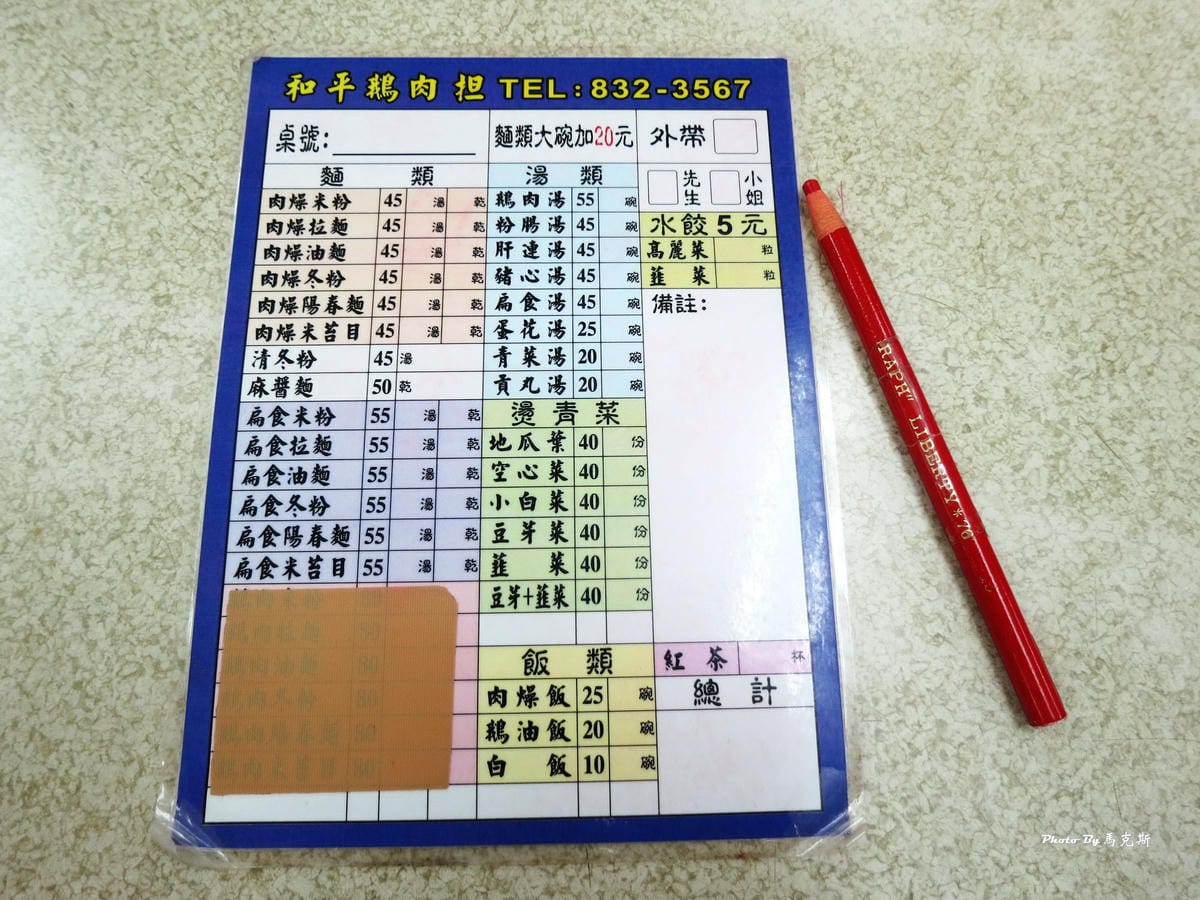 和平鵝肉担 TEL:832-3567
桌號:
麵類大碗加20元
外帶
先生 小姐
麵 類
肉燥米粉 45 湯 乾
肉燥拉麵 45 湯 乾
肉燥油麵 45 湯 乾
肉燥冬粉 45 湯 乾
肉燥陽春麵 45 湯 乾
肉燥米苔目 45 湯 乾
清冬粉 45 湯
麻醬麵 50 乾
扁食米粉 55 湯 乾
扁食拉麵 55 湯 乾
扁食油麵 55 湯 乾
扁食冬粉 55 湯 乾
扁食陽春麵 55 湯 乾
扁食米苔目 55 湯 乾
鵝肉拉麵 80
鵝肉油麵 80
鵝肉冬粉 80
鵝肉陽春麵 80
鵝肉米苔目 80
湯 類
鵝肉湯 55 碗
粉腸湯 45 碗
肝連湯 45 碗
豬心湯 45 碗
扁食湯 45 碗
蛋花湯 25 碗
青菜湯 20 碗
貢丸湯 20 碗
燙青菜
地瓜葉 40 份
空心菜 40 份
小白菜 40 份
豆芽菜 40 份
韮菜 40 份
豆芽+韮菜 40 份
飯 類
肉燥飯 25 碗
鵝油飯 20 碗
白飯 10 碗
水餃5元
高麗菜 粒
韮菜 粒
備註:
紅茶 杯
總 計
RAPH" LIBERTY*76
Photo By 馬克斯